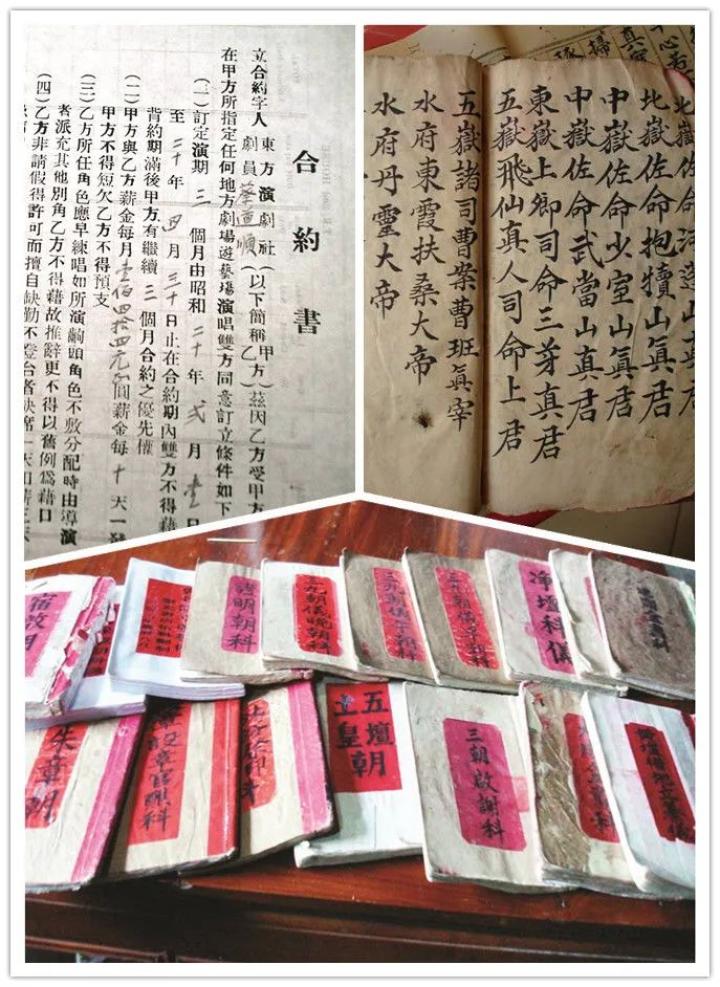 合約書
立合約字人 東方演劇社 (以下簡稱甲方) 茲因乙方受甲方
劇員 (以下簡稱乙方)
在甲方所指定任何地方劇場遊藝場演唱雙方同意訂立條件如下
(一)訂定演期 三 個月由昭和 二十 年 弍 月 壹 日
至 二十 年 四 月 三十 日止在合約期內雙方不得藉
背約期滿後甲方有繼續 三 個月合約之優先權
(二)甲方與乙方薪金每月壹佰四拾四元 圓薪金每 十 天一發
甲方不得短欠乙方不得預支
(三)乙方所任角色應早練唱如所演齣頭角色不敷分配時由導演
者派充其他別角乙方不得藉故推辭更不得以舊例為藉口
(四)乙方非請假得許可而擅自缺勤不登台者缺席一天扣薪三天
北嶽佐命河逢山真君
北嶽佐命抱犢山真君
中嶽佐命少室山真君
中嶽佐命武當山真君
東嶽上卿司命三茅真君
五嶽飛仙真人司命上君
五嶽諸司曹案曹班真宰
水府東霞扶桑大帝
水府丹靈大帝
宿啟朝
啓明朝科
三九朝儀晚朝科
三九朝儀午朝科
三九朝儀早朝科
淨壇科儀
朱章朝
五壇
玉皇朝
三朝啟謝科